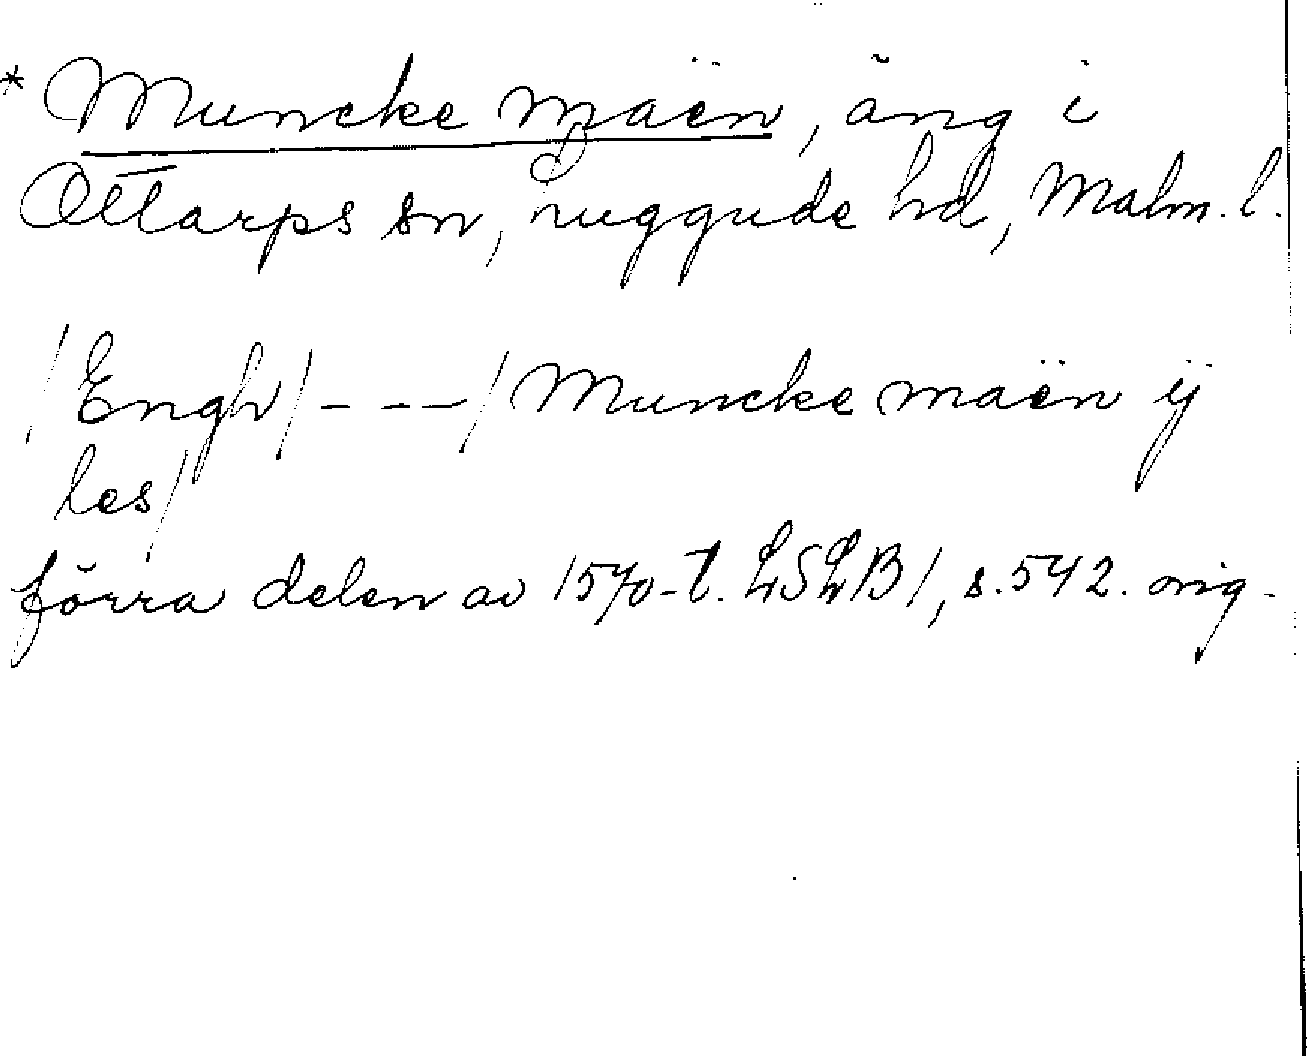 * Muncke maën, äng i
Ottarps sn, Luggude hd, Malm. l.
/Engh/ - - - / Muncke maën ij
les/
förra delen av 1570-t. LSLB 1, s. 542. orig.